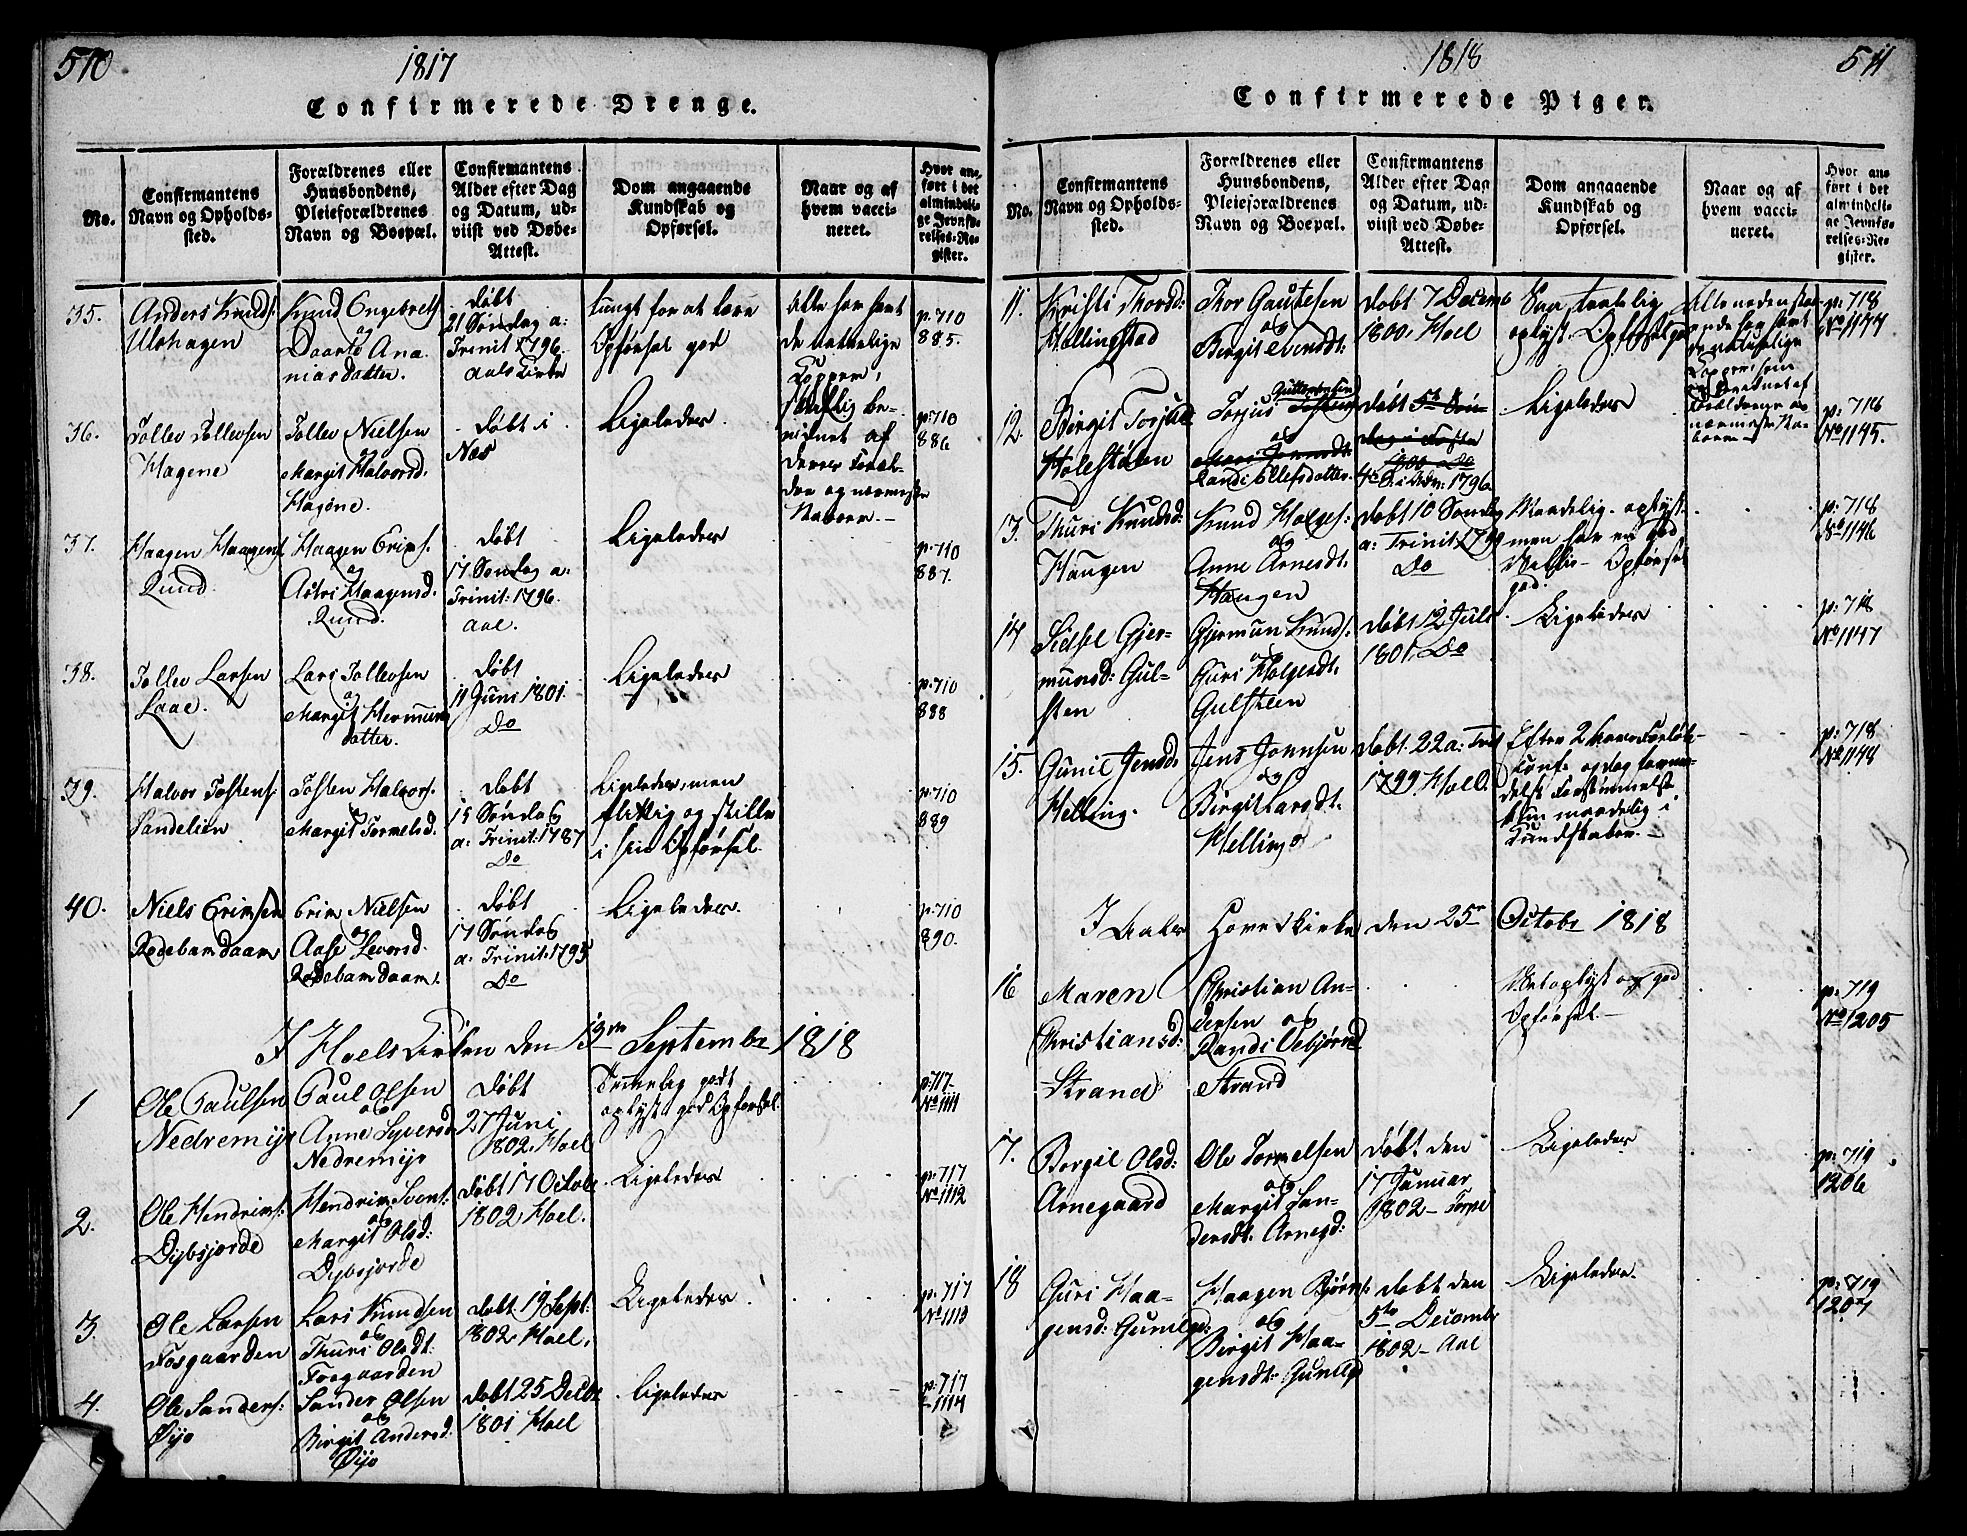 510
1817
Confirmerede Drenge.
No.
Confirmantens
Navn og Opholds-
sted.
Forældrenes eller
Huusbondens,
Pleieforældrenes
Navn og Boepæl.
Confirmantens
Alder efter Dag
og Datum, ud-
viist ved Døbe-
Attest.
Dom angaaende
Kundskab og
Opførsel.
Naar og af
hvem vacci-
neret.
Hvor an-
ført i det
almindeli-
ge Jevnfø-
relses-Re-
gister.
35.
Anders Knuds:
Ulshagen
Knud Engebrets
og
Daarte Ana-
niasdatter.
døbt
21 Søndag a:
Trinit 1796.
Aals Kirke
tungt for at lære
Opførsel god
Alle har havt
de naturlige
Kopper,
skriftlig be-
vidnet af
deres Foræl-
dre og nærmeste
Naboer.
p: 710
885.
36.
Tollev Tollevsen
Hagene
Tollev Nielsen
Margit Halvorsd.
Hagene.
døbt i
Næs
Ligeledes
p: 710
886
37.
Haagen Haagens
Rund.
Haagen Grims.
og
Astri Haagensd.
Rund.
døbt
17 Søndag a:
Trinit: 1796.
Aal.
Ligeledes
p: 710
887.
38.
Tollev Larsen
Laae.
Lars Tollevsen
og
Margit Hermuns
datter.
døbt
11 Juni 1801.
Do
Ligeledes
p: 710
888
39.
Halvor Tostens:
Sandelien
Tosten Halvors.
Margit Tormelsd.
døbt
15 Søndag
a: Trinit: 1787
Do
Ligeledes, men
flittig og stille
i sin Opførsel.
p: 710
889
40.
Niels Grimsen
Rodebamdaam
Grim Nielsen
og
Aase Levorsd.
Rodebamdaam.
døbt
17 Søndag
a: Trinit: 1795
Do
Ligeledes.
p: 710
890.
I Hoels Kirken den 13de September 1818
1
Ole Paulsen
Nedremijo
Paul Olsen
og
Anne Syversd
Nedremijo
døbt
27 Juni
1802, Hoel
Temmelig godt
oplyst, god Opførsel.
p: 717
No 1111
2.
Ole Hendrims:
Dybsjorde
Hendrim Svens:
og
Margit Olsd:
Dybsjorde
døbt 17 Octobr
1802 Hoel.
Ligeledes
p: 717
No 1112
3.
Ole Larsen
Fosgaarden
Lars Knudsen
og
Thuri Olsdt:
Fosgaarden
døbt 19 Sept:
1802, Hoel,
Ligeledes
p: 717
No 1113
4.
Ole Sanders:
Øijo
Sander Olsen
og
Birgit Andersd.
Øijo
døbt 25 Decbr
1801 Hoel
Ligeledes
p: 717
1114
1818
511
Confirmerede Piger.
No.
Confirmantens
Navn og Opholds-
sted.
Forældrenes eller
Huusbondens,
Pleieforældrenes
Navn og Boepæl.
Confirmantens
Alder efter Dag
og Datum, ud-
viist ved Døbe-
Attest.
Dom angaaende
Kundskab og
Opførsel.
Naar og af
hvem vacci-
neret.
Hvor an-
ført i det
almindeli-
ge Jevnfø-
relses-Re-
gister.
11.
Kristi Thorsd:
Hollingstad
Thor Gautesen
og
Birgit Evensdt:
døbt 7 Decemb
1800, Hoel
oplyst. Opførsel god
Alle nedenstaa-
ende har havt
de naturlige
Kopper, som
er bevidnet af
Forældrene og
nærmeste Na-
boer
p: 718
No 1144
12.
Birgit Torjusd
Holestølen
Torjus Guttormsen
og
Randi Ellefsdatter.
døbt
1796
Ligeledes
p: 718
No 1145.
13.
Thuri Knudsd:
Haugen
Knud Holges:
og
Anne Arnesdt:
Haugen
døbt 10 Søndag
a: Trinit: 1799
Do
Maadelig oplyst
men har en god
Villie- Opførsel
god.
p: 718
No 1146
14
Sidsel Gjer-
munsd: Gul-
sten
Gjermun Knuds:
og
Guri Holgesdt.
Gulsteen
døbt 12 Juli
1801. Do
Ligeledes
p: 718
No 1147
15.
Gunil Jensd.
Helling.
Jens Johnsen
og
Birgit Larsdt:
Helling
døbt 22 a: Trit
1799 Hoel.
Efter 2
Kundskaber.
p: 718
No 1148
I Aals Hoved Kirke den 25de Octobr 1818
16
Maren
Christiansd:
Strand
Christian An-
dersen og
Randi Asbjørnd
Strand
Vel oplyst og god
Opførsel.
p: 719
No 1205
17.
Borgil Olsd:
Arnegaard
Ole Tormelsen
og
Margit San-
dersdt. Arnegd:
døbt den
17 Januar
1802 - Torpe
Ligeledes
p: 719
1206
18
Guri Haa-
gensd: Gurilgd:
Haagen Bjørns:
og
Birgit Haa-
gensdt:
døbt den
5te Decembr
1802 - Aal
Ligeledes.
p: 719
1207